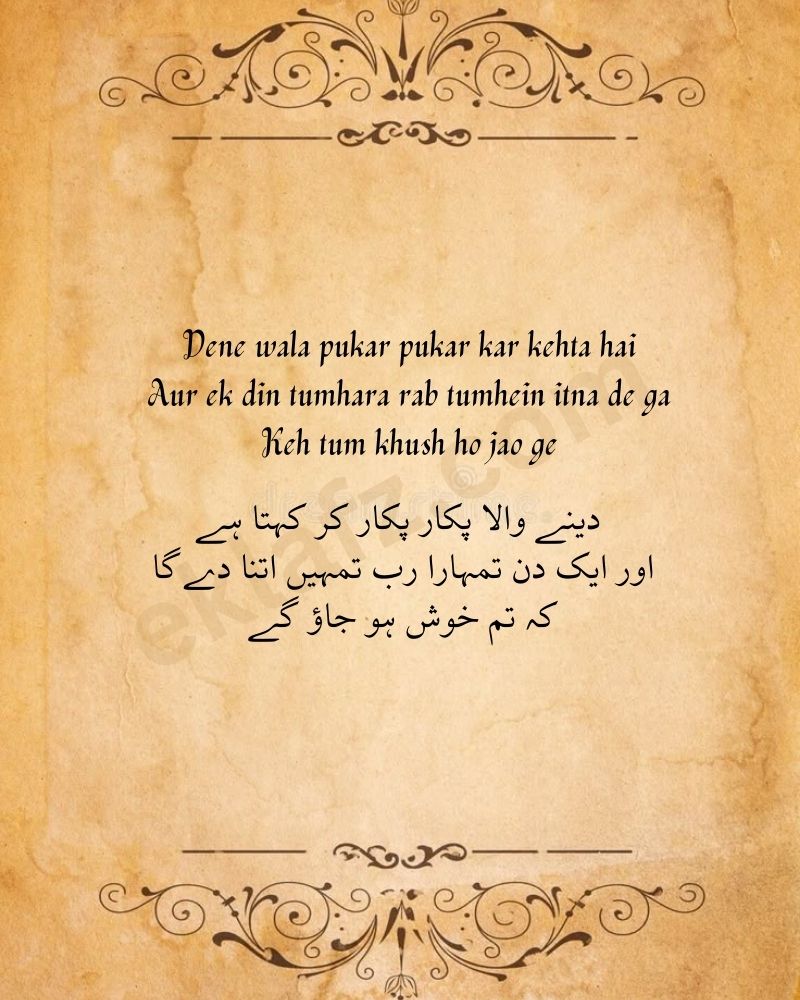 Dene wala pukar pukar kar kehta hai
Aur ek din tumhara rab tumhein itna de ga
Keh tum khush ho jao ge
دینے والا پکار پکار کر کہتا ہے
اور ایک دن تمہارا رب تمہیں اتنا دے گا
کہ تم خوش ہو جاؤ گے